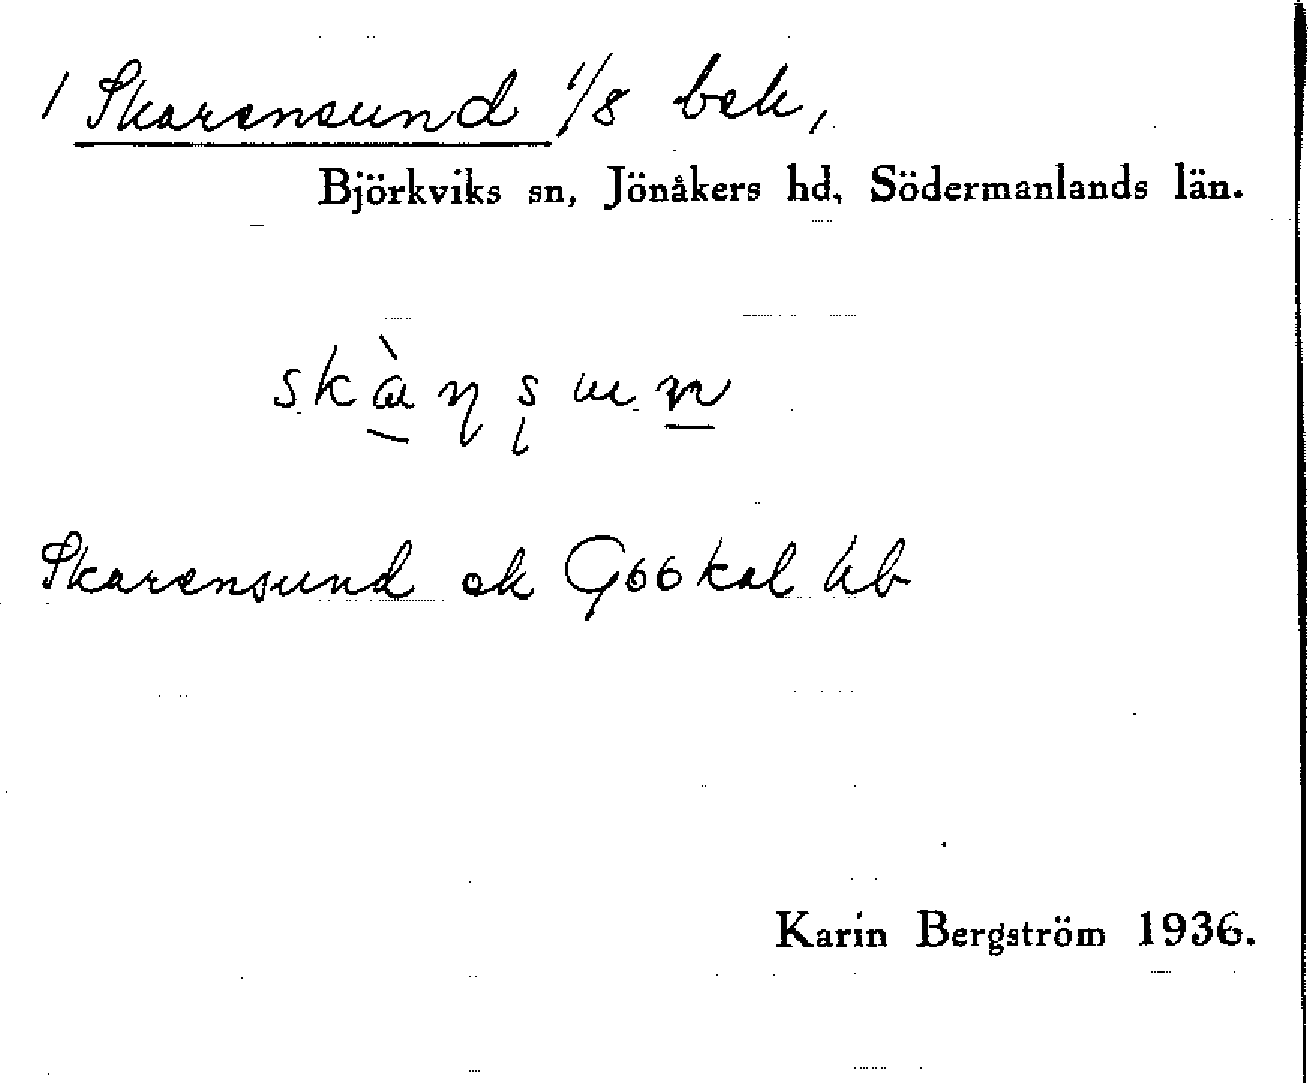 1 Skarensund 1/8 bek,
Björkviks sn, Jönåkers hd, Södermanlands län.
Skarensund ek G66 kal
Karin Bergström 1936.